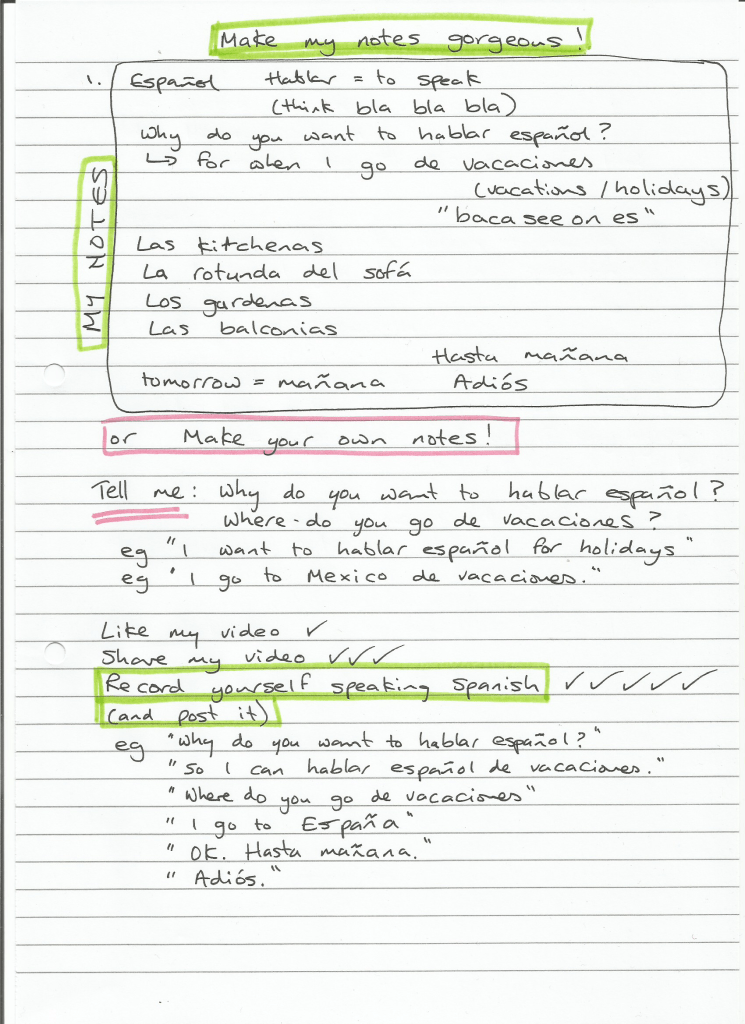 Make my notes gorgeous!
1. Español Hablar = to speak
(think bla bla bla)
Why do you want to hablar español?
↳ for when I go de vacaciones
(vacations / holidays)
"baca see on es"
MY NOTES
Las kitchenas
La rotunda del sofá
Los gardenas
Las balconias
Hasta mañana
tomorrow = mañana Adiós
or Make your own notes!
Tell me: Why do you want to hablar español?
Where do you go de vacaciones?
eg "I want to hablar español for holidays"
eg "I go to Mexico de vacaciones."
Like my video ✓
Share my video ✓✓✓
Record yourself speaking Spanish ✓✓✓✓✓
(and post it)
eg "Why do you want to hablar español?"
"So I can hablar español de vacaciones."
"Where do you go de vacaciones"
"I go to España"
"OK. Hasta mañana."
"Adiós."